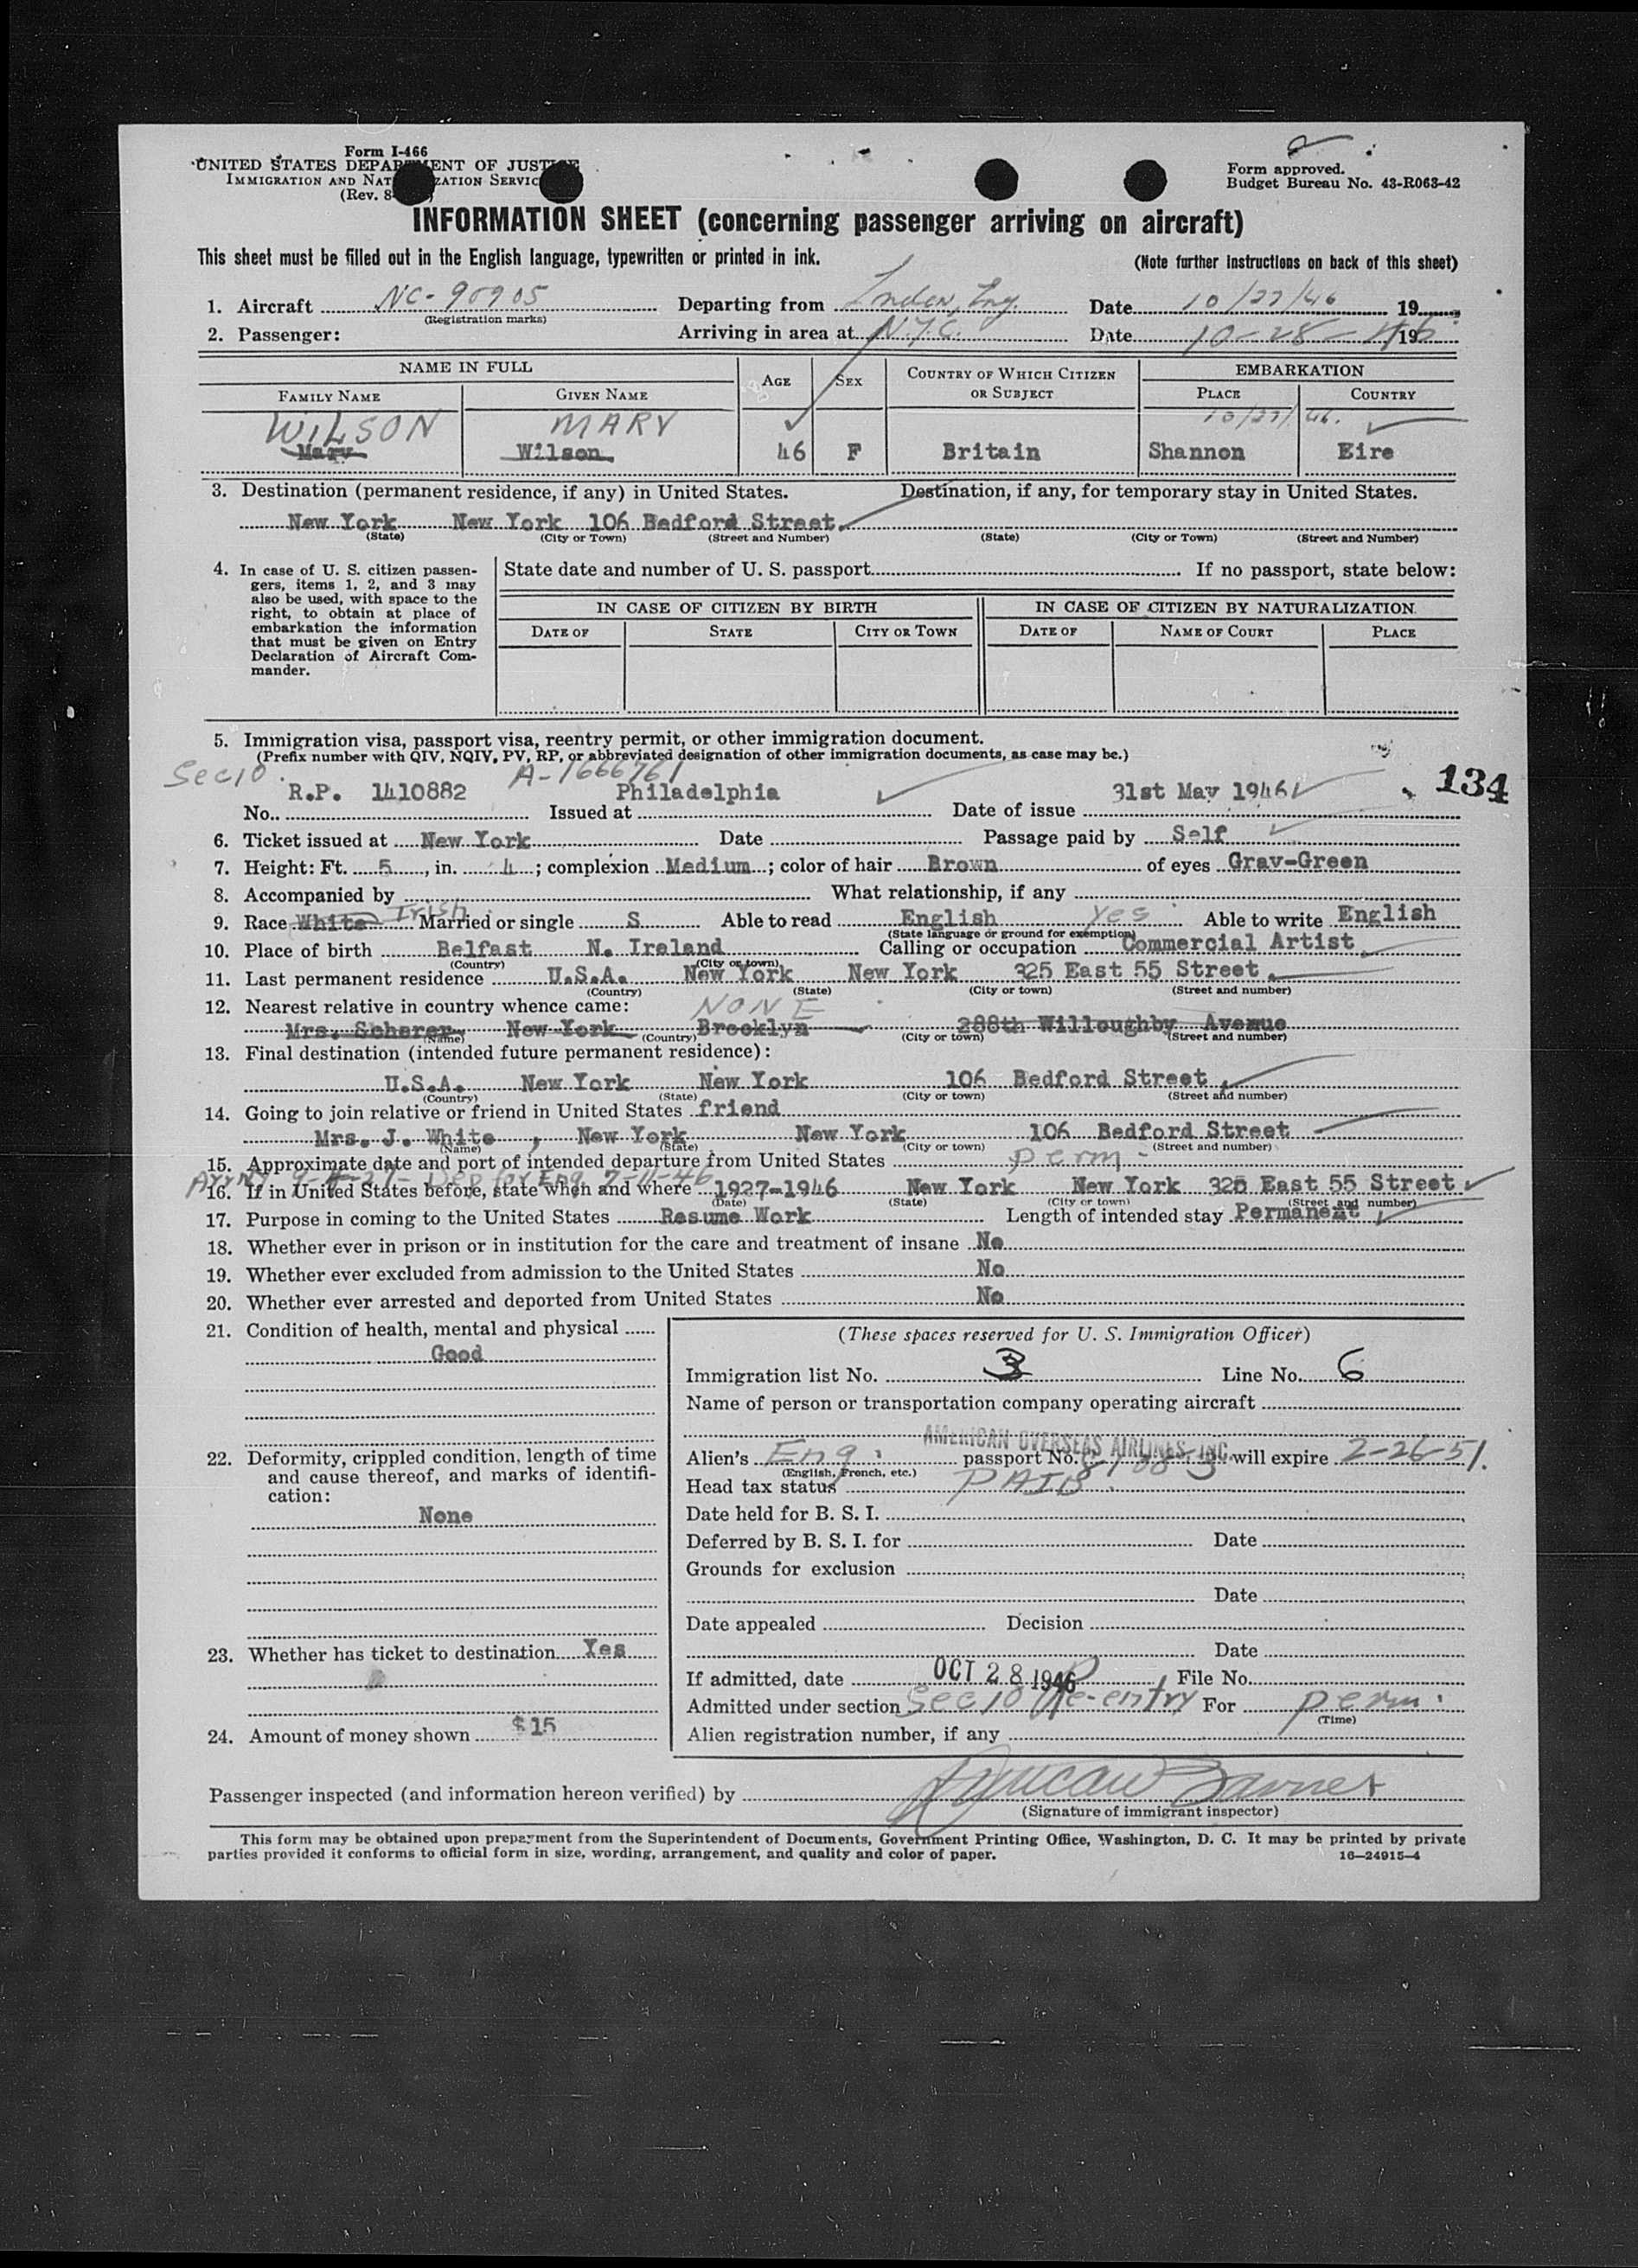 Form I-466
UNITED STATES DEPARTMENT OF JUSTICE
IMMIGRATION AND NATURALIZATION SERVICE
(Rev. 8-
Form approved.
Budget Bureau No. 43-R063-42
INFORMATION SHEET (concerning passenger arriving on aircraft)
This sheet must be filled out in the English language, typewritten or printed in ink.
(Note further instructions on back of this sheet)
1. Aircraft NC-90905 Departing from London, Eng. Date 10/27/46 19
(Registration marks)
2. Passenger: Arriving in area at N.Y.C. Date 10-28-46 19
NAME IN FULL
AGE SEX COUNTRY OF WHICH CITIZEN OR SUBJECT EMBARKATION
FAMILY NAME GIVEN NAME PLACE COUNTRY
10/27/46.
WILSON MARY
Mary Wilson 46 F Britain Shannon Eire
3. Destination (permanent residence, if any) in United States. Destination, if any, for temporary stay in United States.
New York New York 106 Bedford Street.
(State) (City or Town) (Street and Number) (State) (City or Town) (Street and Number)
4. In case of U. S. citizen passen-
gers, items 1, 2, and 3 may
also be used, with space to the
right, to obtain at place of
embarkation the information
that must be given on Entry
Declaration of Aircraft Com-
mander.
State date and number of U. S. passport If no passport, state below:
IN CASE OF CITIZEN BY BIRTH IN CASE OF CITIZEN BY NATURALIZATION
DATE OF STATE CITY OR TOWN DATE OF NAME OF COURT PLACE
5. Immigration visa, passport visa, reentry permit, or other immigration document.
(Prefix number with QIV, NQIV, PV, RP, or abbreviated designation of other immigration documents, as case may be.)
Sec 10. A-1666761
134
R.P. 1410882 Philadelphia 31st May 1946
No. Issued at Date of issue
6. Ticket issued at New York Date Passage paid by Self
7. Height: Ft. 5, in. 4; complexion Medium; color of hair Brown of eyes Gray-Green
8. Accompanied by What relationship, if any
9. Race White Irish Married or single S Able to read English yes Able to write English
(State language or ground for exemption)
10. Place of birth Belfast N. Ireland Calling or occupation Commercial Artist
(Country) (City or town)
11. Last permanent residence U.S.A. New York New York 325 East 55 Street.
(Country) (State) (City or town) (Street and number)
12. Nearest relative in country whence came: NONE
Mrs. Scherer, New York Brooklyn 288th Willoughby Avenue
(Name) (Country) (City or town) (Street and number)
13. Final destination (intended future permanent residence):
U.S.A. New York New York 106 Bedford Street
(Country) (State) (City or town) (Street and number)
14. Going to join relative or friend in United States friend
Mrs. J. White , New York New York 106 Bedford Street
(Name) (State) (City or town) (Street and number)
15. Approximate date and port of intended departure from United States perm -
Dep for Eng 7-11-46
16. If in United States before, state when and where 1927-1946 New York New York 325 East 55 Street
(Date) (State) (City or town) (Street and number)
17. Purpose in coming to the United States Resume Work Length of intended stay Permanent
18. Whether ever in prison or in institution for the care and treatment of insane No
19. Whether ever excluded from admission to the United States No
20. Whether ever arrested and deported from United States No
21. Condition of health, mental and physical
Good
22. Deformity, crippled condition, length of time
and cause thereof, and marks of identifi-
cation:
None
23. Whether has ticket to destination Yes
24. Amount of money shown $15
(These spaces reserved for U. S. Immigration Officer)
Immigration list No. 3 Line No. 6
Name of person or transportation company operating aircraft
AMERICAN OVERSEAS AIRLINES, INC.
Alien's Eng. passport No. will expire 2-26-51.
(English, French, etc.)
Head tax status PAID
Date held for B. S. I.
Deferred by B. S. I. for Date
Grounds for exclusion
Date
Date appealed Decision
Date
If admitted, date OCT 28 1946 File No.
Admitted under section Sec 10 Re-entry For perm.
(Time)
Alien registration number, if any
Passenger inspected (and information hereon verified) by Duncan
(Signature of immigrant inspector)
This form may be obtained upon prepayment from the Superintendent of Documents, Government Printing Office, Washington, D. C. It may be printed by private
parties provided it conforms to official form in size, wording, arrangement, and quality and color of paper. 16—24915-4